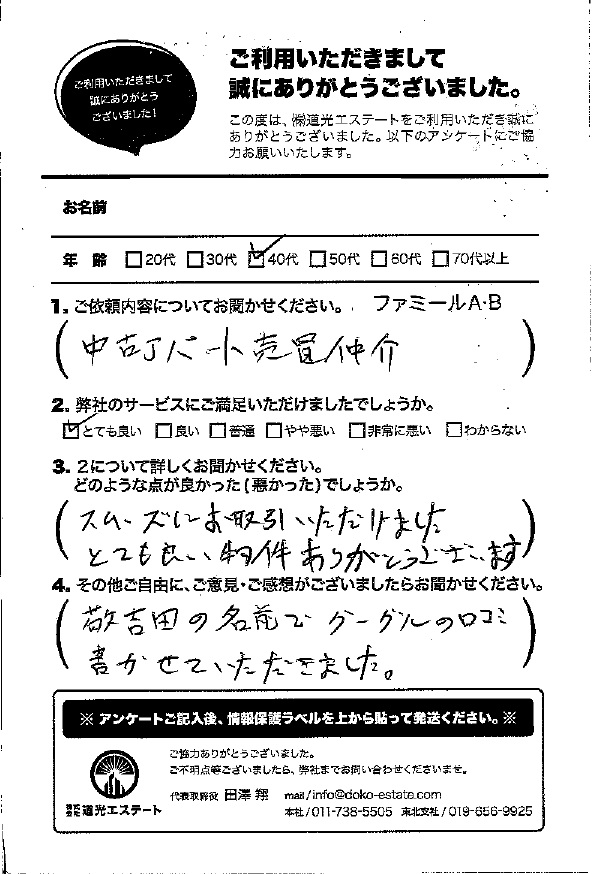 ご利用いただきまして
誠にありがとう
ございました!
ご利用いただきまして
誠にありがとうございました。
この度は、㈱道光エステートをご利用いただき誠に
ありがとうございました。以下のアンケートにご協
力お願いいたします。
お名前
年 齢 □20代 □30代 ☑40代 □50代 □60代 □70代以上
1. ご依頼内容についてお聞かせください。 ファミールA・B
(中古アパート売買仲介)
2. 弊社のサービスにご満足いただけましたでしょうか。
☑とても良い □良い □普通 □やや悪い □非常に悪い □わからない
3. 2について詳しくお聞かせください。
どのような点が良かった(悪かった)でしょうか。
(スムーズにお取引いただけました
とても良い物件ありがとうございます)
4. その他ご自由に、ご意見・ご感想がございましたらお聞かせください。
(吉田の名前でグーグルの口コミ
書かせていただきました。)
※ アンケートご記入後、情報保護ラベルを上から貼って発送ください。※
ご協力ありがとうございました。
ご不明点等ございましたら、弊社までお問い合わせくださいませ。
代表取締役 田澤 翔 mail/info@doko-estate.com
株式会社 道光エステート 本社/011-738-5505 東北支社/019-656-9925